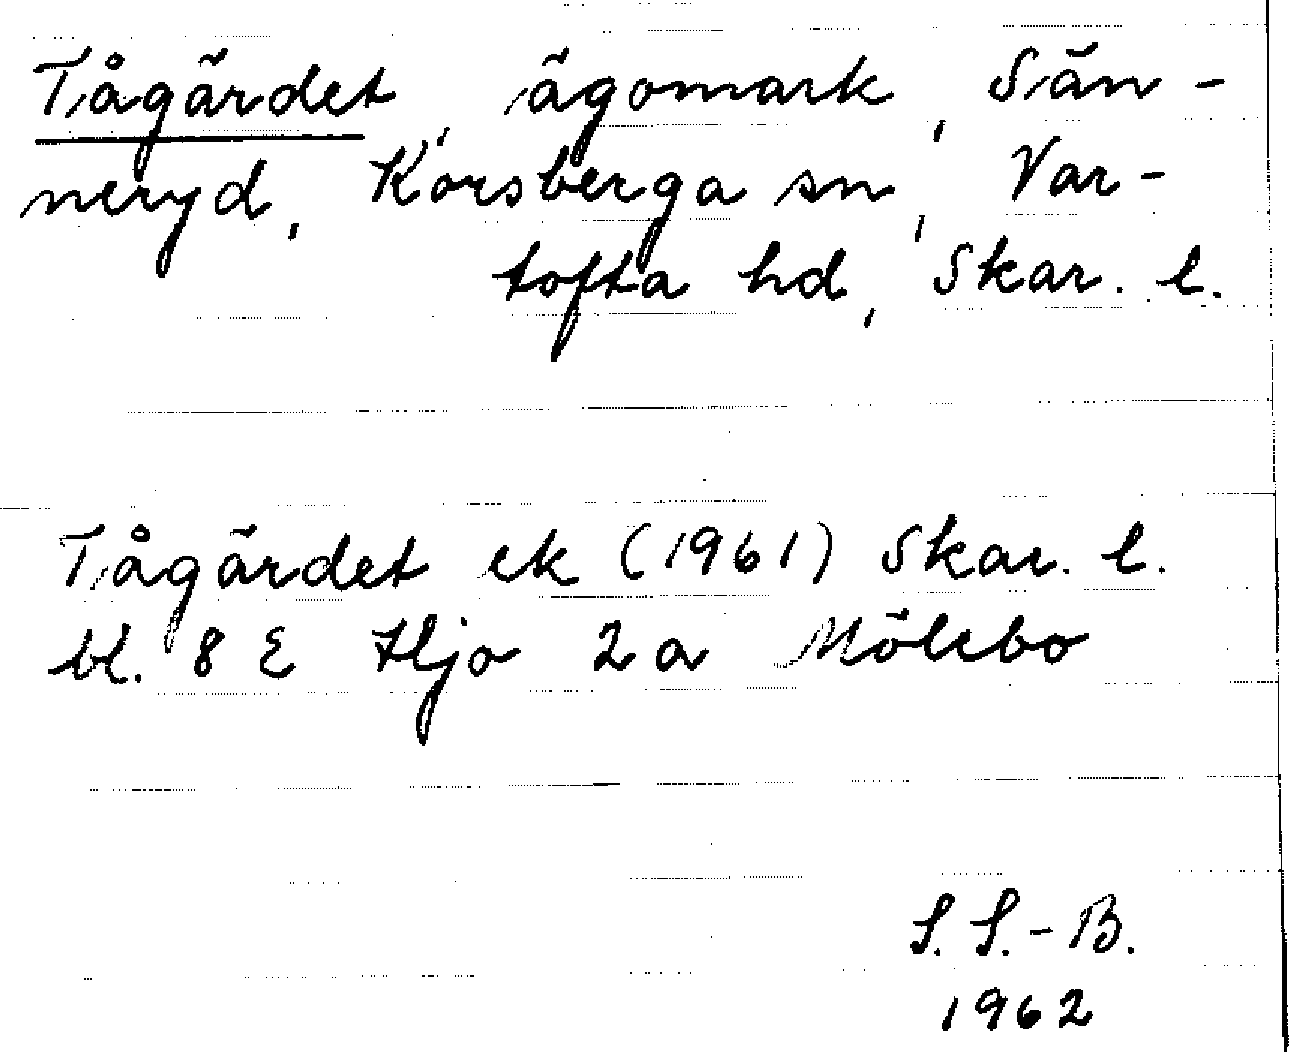 Tågärdet, ägomark, Sän-
neryd, Korsberga sn, Var-
tofta hd, Skar. l.
Tågärdet ek (1961) Skar. l.
bl. 8 E Hjo 2 a Mölebo
S. S.-B.
1962